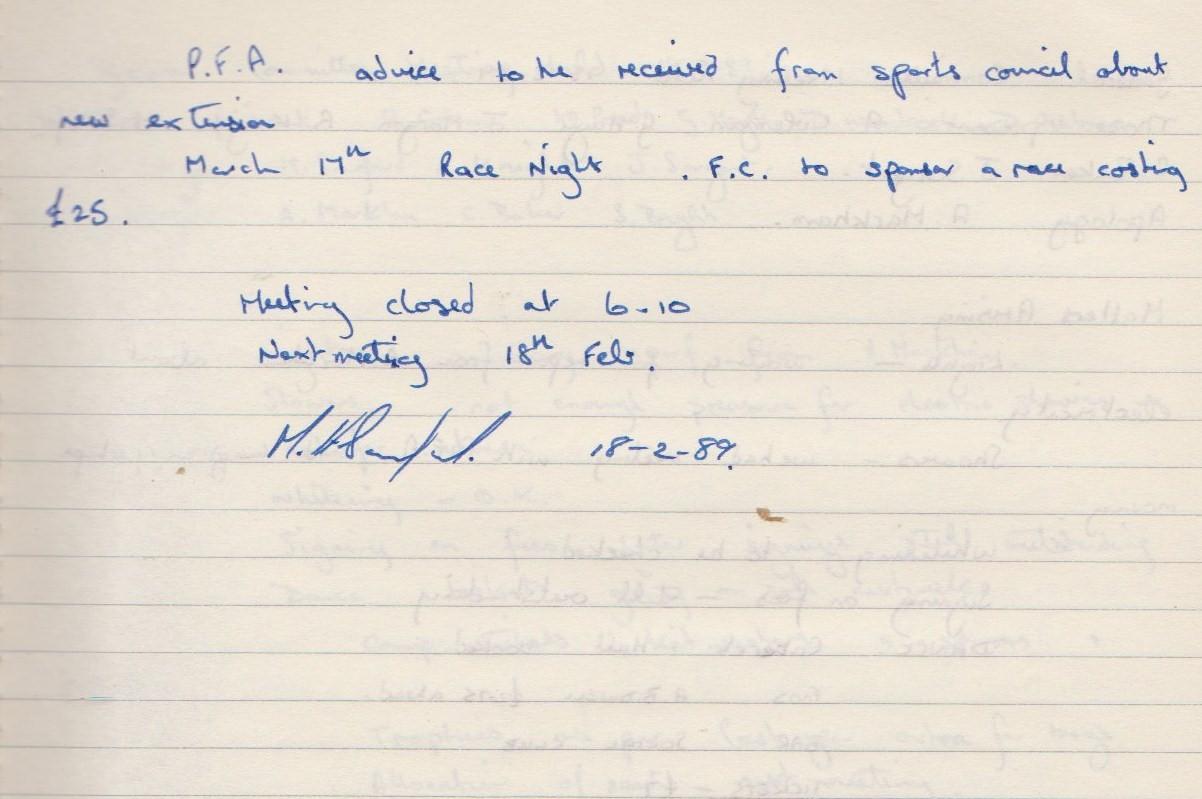 P.F.A. advice to be received from sports council about
new extension
March 17th Race Night . F.C. to sponsor a race costing
£25.
Meeting closed at 6-10
Next meeting 18th Feb.
18-2-89.